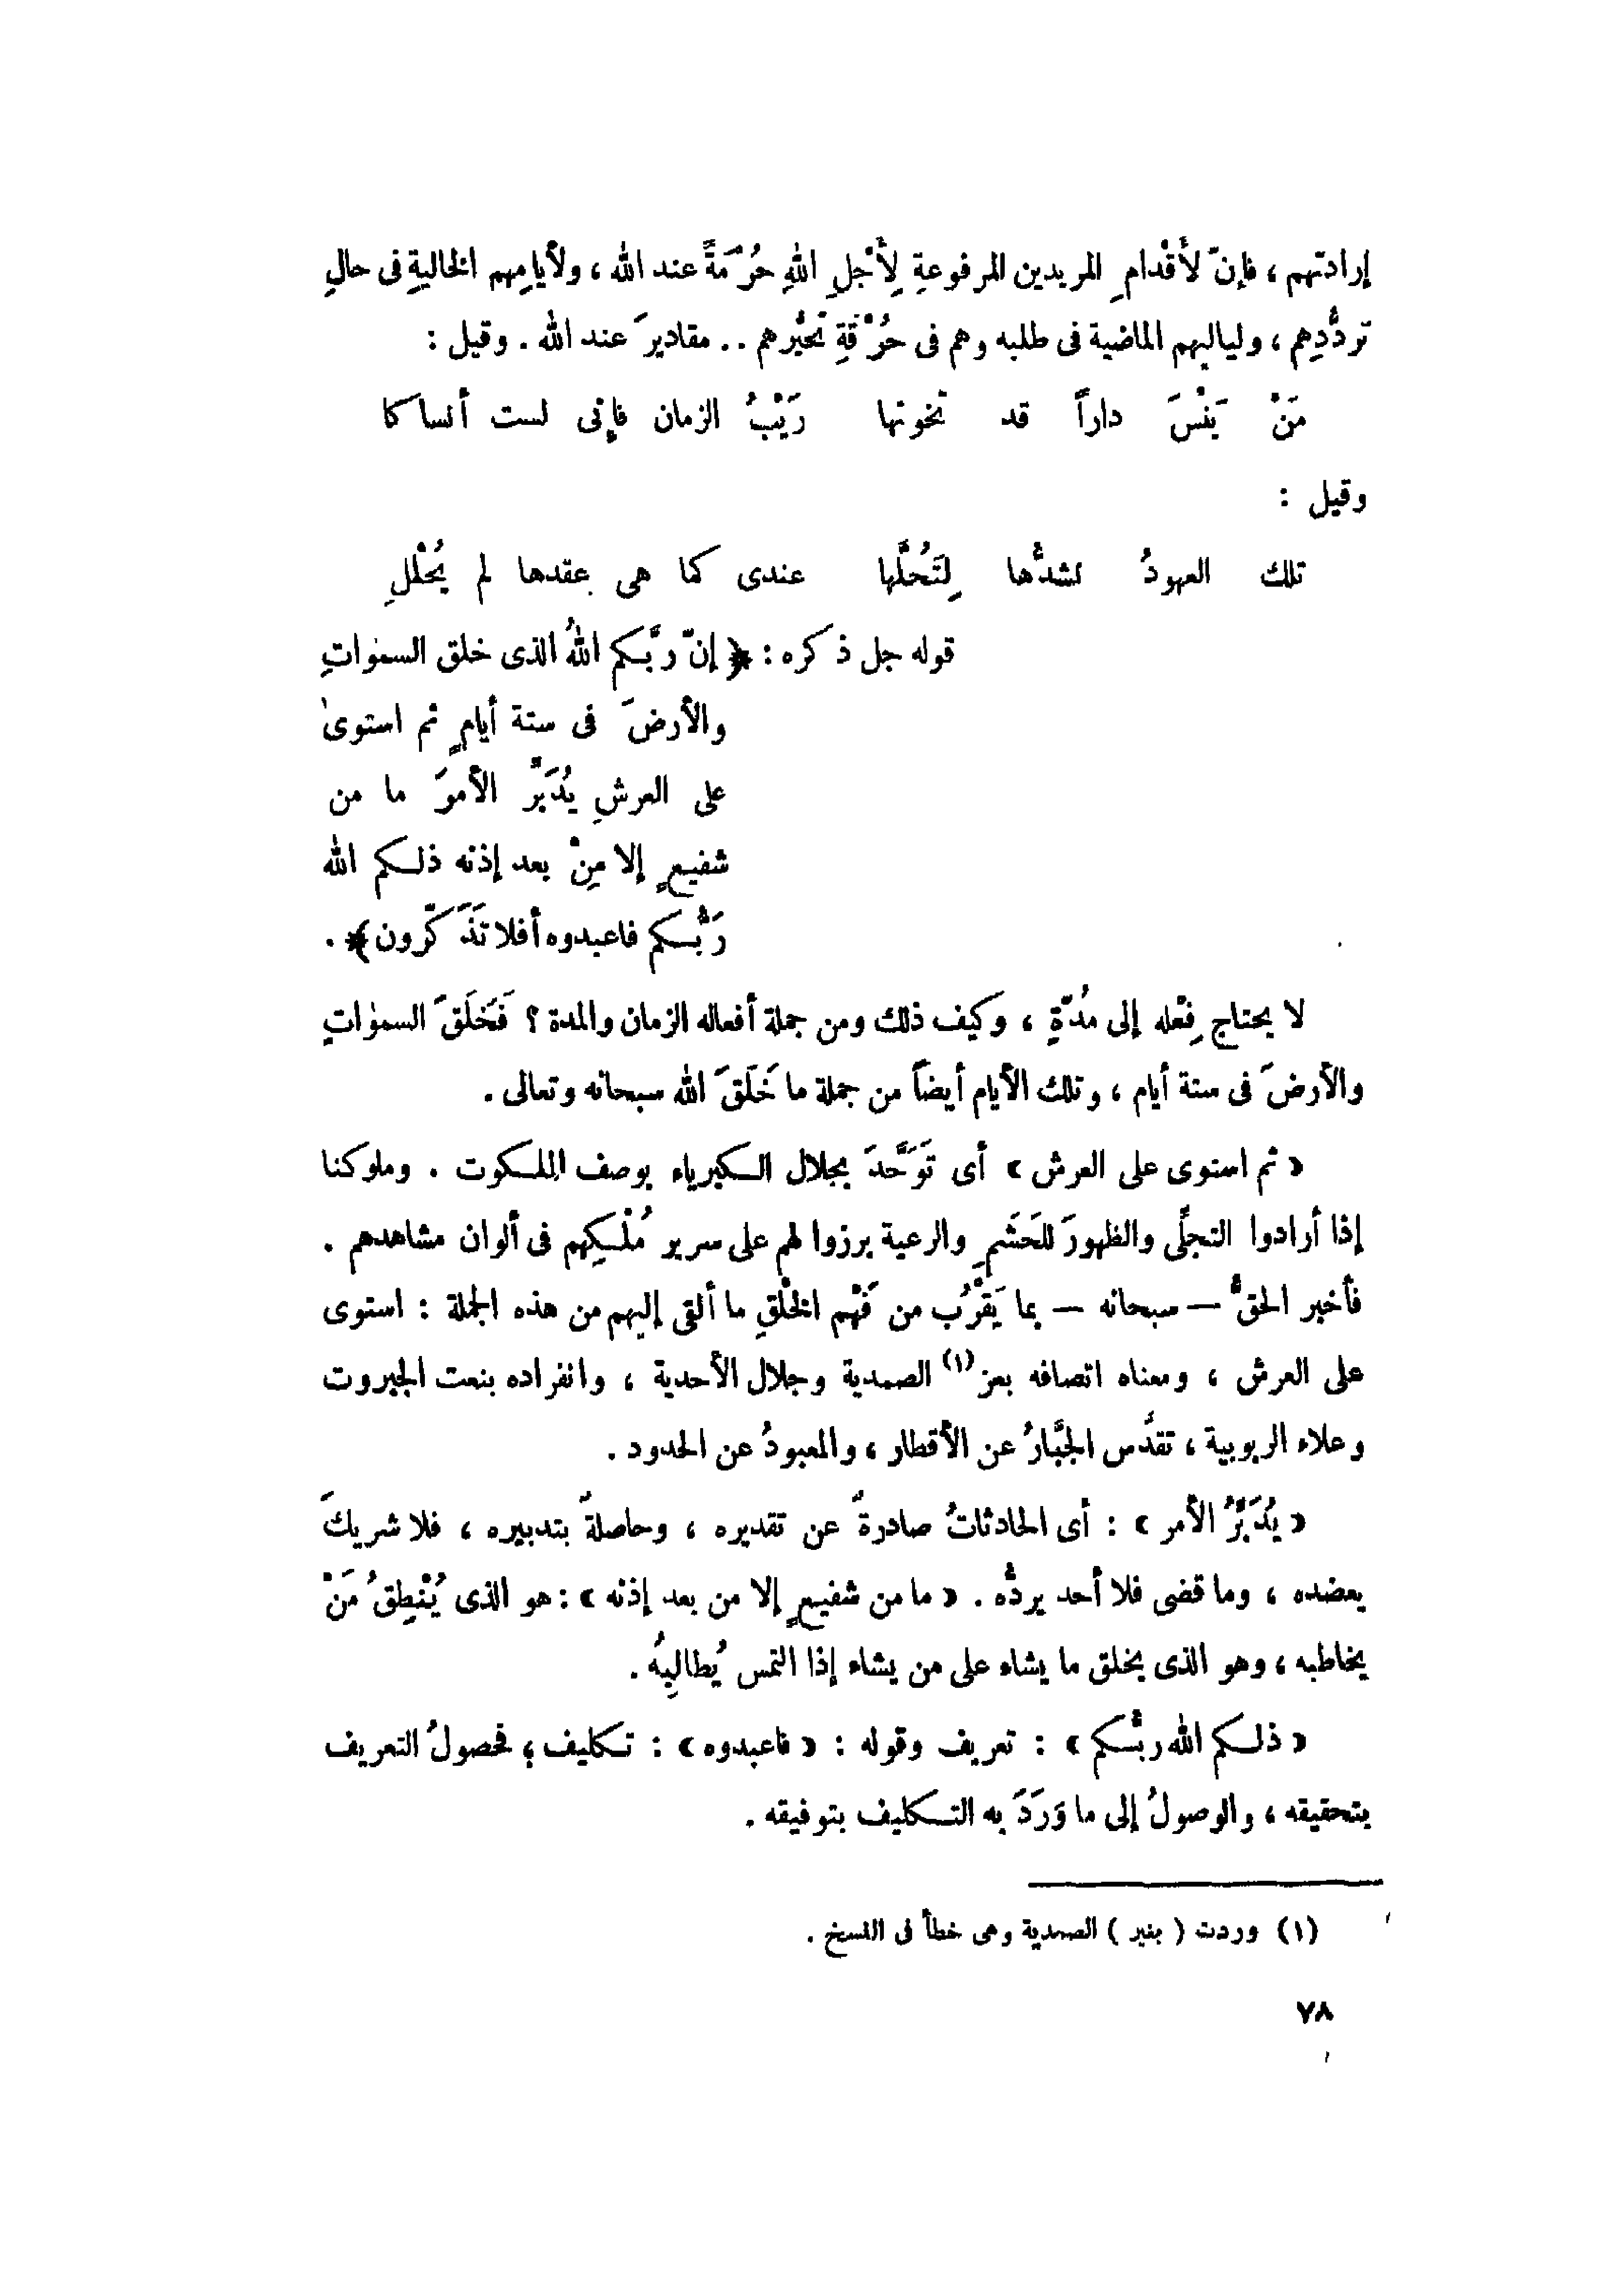 إرادتهم ، فإنّ لأَقْدامِ المريدين المرفوعةِ لِأَجْلِ اللهِ حُرْمَةً عند الله ، ولأيامِهم الخاليةِ فى حالِ
تردُّدِهم ، ولياليهم الماضية فى طلبه وهم فى حُرْقَةِ تَحَيُّرهم .. مقاديرَ عند الله . وقيل :
مَنْ يَنْسَ داراً قد تخونها رَيْبُ الزمان فإِنى لست أنساكا
وقيل :
تلك العهودُ نشدُّها لِتَحُلَّها عندى كما هى عقدها لم يُحْلَلِ
قوله جل ذكره : ﴿ إنّ ربَّكم اللهُ الذى خلق السمٰواتِ
والأرضَ فى ستة أيامٍ ثم استوىٰ
على العرشِ يُدَبِّرُ الأمرَ ما من
شفيعٍ إلا مِنْ بعد إذنه ذلكم الله
رَبُّكم فاعبدوه أفلا تَذَكّرون ﴾ .
لا يحتاج فِعْله إلى مُدّةٍ ، وكيف ذلك ومن جملة أفعاله الزمان والمدة ؟ فَخَلَقَ السمٰواتِ
والأرضَ فى ستة أيام ، وتلك الأيام أيضاً من جملة ما خَلَقَ الله سبحانه وتعالى .
« ثم استوى على العرش » أى تَوَحَّدَ بجلال الكبرياء بوصف الملكوت . وملوكنا
إذا أرادوا التجلِّى والظهورَ للحَشَمِ والرعية برزوا لهم على سرير مُلْكِهم فى ألوان مشاهدهم .
فأخبر الحقُّ — سبحانه — بما يَقْرُب من فَهْم الخَلْقِ ما ألقى إليهم من هذه الجملة : استوى
على العرش ، ومعناه اتصافه بعز(١) الصمدية وجلال الأحدية ، وانفراده بنعت الجبروت
وعلاء الربوبية ، تقدَّس الجبَّارُ عن الأقطار ، والمعبودُ عن الحدود .
« يُدَبِّرُ الأمر » : أى الحادثاتُ صادرةٌ عن تقديره ، وحاصلةٌ بتدبيره ، فلا شريكَ
يعضده ، وما قضى فلا أحد يردُّه . « ما من شفيعٍ إلا من بعد إذنه » : هو الذى يُنْطِقُ مَنْ
يخاطبه ، وهو الذى يخلق ما يشاء على من يشاء إذا التمس يُطالِبُه .
« ذلكم الله ربُّكم » : تعريف وقوله : « فاعبدوه » : تكليف ؛ فحصولُ التعريف
بتحقيقه ، والوصولُ إلى ما وَرَدَ به التكليف بتوفيقه .
(١) وردت ( بنير ) الصمدية وهى خطأ فى النسخ .
٧٨